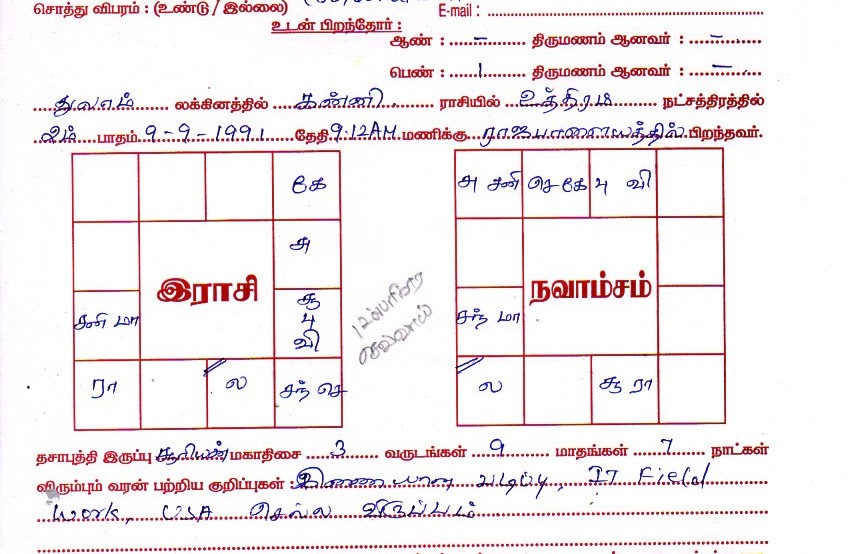 சொத்து விபரம் : (உண்டு / இல்லை)
E-mail :
உடன் பிறந்தோர் :
ஆண் : – திருமணம் ஆனவர் : –
பெண் : 1 திருமணம் ஆனவர் : –
துலாம் லக்கினத்தில் கன்னி ராசியில் உத்திரம் நட்சத்திரத்தில்
2ம் பாதம் 9-9-1991 தேதி 9.12AM மணிக்கு ராஜபாளையத்தில் பிறந்தவர்.
கே
அ
சனி மா
சூ
பு
வி
ரா
ல
சந் செ
இராசி
செவ்வாய்
அ சனி
செ கே
பு வி
சந் மா
ல
சூ ரா
நவாம்சம்
தசாபுத்தி இருப்பு சூரியன் மகாதிசை 3 வருடங்கள் 9 மாதங்கள் 7 நாட்கள்
விரும்பும் வரன் பற்றிய குறிப்புகள் : இணையான படிப்பு, IT Field
Work, USA செல்ல விருப்பம்